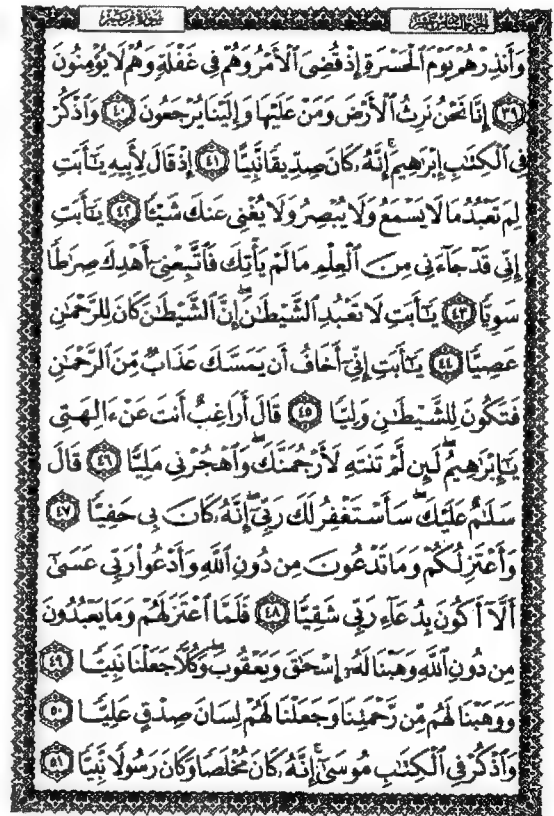 سورة مريم
الجزء السادس عشر
وَأَنذِرْهُمْ يَوْمَ ٱلْحَسْرَةِ إِذْ قُضِىَ ٱلْأَمْرُ وَهُمْ فِى غَفْلَةٍ وَهُمْ لَا يُؤْمِنُونَ
﴿٣٩﴾ إِنَّا نَحْنُ نَرِثُ ٱلْأَرْضَ وَمَنْ عَلَيْهَا وَإِلَيْنَا يُرْجَعُونَ ﴿٤٠﴾ وَٱذْكُرْ
فِى ٱلْكِتَٰبِ إِبْرَٰهِيمَ ۚ إِنَّهُۥ كَانَ صِدِّيقًا نَّبِيًّا ﴿٤١﴾ إِذْ قَالَ لِأَبِيهِ يَٰٓأَبَتِ
لِمَ تَعْبُدُ مَا لَا يَسْمَعُ وَلَا يُبْصِرُ وَلَا يُغْنِى عَنكَ شَيْـًٔا ﴿٤٢﴾ يَٰٓأَبَتِ
إِنِّى قَدْ جَآءَنِى مِنَ ٱلْعِلْمِ مَا لَمْ يَأْتِكَ فَٱتَّبِعْنِىٓ أَهْدِكَ صِرَٰطًا
سَوِيًّا ﴿٤٣﴾ يَٰٓأَبَتِ لَا تَعْبُدِ ٱلشَّيْطَٰنَ ۖ إِنَّ ٱلشَّيْطَٰنَ كَانَ لِلرَّحْمَٰنِ
عَصِيًّا ﴿٤٤﴾ يَٰٓأَبَتِ إِنِّىٓ أَخَافُ أَن يَمَسَّكَ عَذَابٌ مِّنَ ٱلرَّحْمَٰنِ
فَتَكُونَ لِلشَّيْطَٰنِ وَلِيًّا ﴿٤٥﴾ قَالَ أَرَاغِبٌ أَنتَ عَنْ ءَالِهَتِى
يَٰٓإِبْرَٰهِيمُ ۖ لَئِن لَّمْ تَنتَهِ لَأَرْجُمَنَّكَ ۖ وَٱهْجُرْنِى مَلِيًّا ﴿٤٦﴾ قَالَ
سَلَٰمٌ عَلَيْكَ ۖ سَأَسْتَغْفِرُ لَكَ رَبِّىٓ ۖ إِنَّهُۥ كَانَ بِى حَفِيًّا ﴿٤٧﴾
وَأَعْتَزِلُكُمْ وَمَا تَدْعُونَ مِن دُونِ ٱللَّهِ وَأَدْعُوا۟ رَبِّى عَسَىٰٓ
أَلَّآ أَكُونَ بِدُعَآءِ رَبِّى شَقِيًّا ﴿٤٨﴾ فَلَمَّا ٱعْتَزَلَهُمْ وَمَا يَعْبُدُونَ
مِن دُونِ ٱللَّهِ وَهَبْنَا لَهُۥٓ إِسْحَٰقَ وَيَعْقُوبَ ۖ وَكُلًّا جَعَلْنَا نَبِيًّا ﴿٤٩﴾
وَوَهَبْنَا لَهُم مِّن رَّحْمَتِنَا وَجَعَلْنَا لَهُمْ لِسَانَ صِدْقٍ عَلِيًّا ﴿٥٠﴾
وَٱذْكُرْ فِى ٱلْكِتَٰبِ مُوسَىٰٓ ۚ إِنَّهُۥ كَانَ مُخْلَصًا وَكَانَ رَسُولًا نَّبِيًّا ﴿٥١﴾